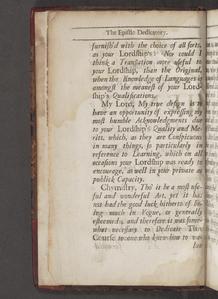 The Epistle Dedicatory.
furnish'd with the choice of all sorts,
as your Lordship's: Nor could I
think a Translation more useful to
your Lordship, than the Original,
when the Knowledge of Languages is
amongst the meanest of your Lord-
ship's Qualifications.
My Lord, My true design is to
have an opportunity of expressing my
most humble Acknowledgments due
to your Lordship's Quality and Me-
ritt, which, as they are Conspicuous
in many things, so particularly in
reference to Learning, which on all
occasions your Lordship was ready to
encourage, as well in your private as
publick Capacity.
Chymistry, Tho' it be a most use-
ful and wonderful Art, yet it has
not had the good luck hitherto of be-
ing much in Vogue, or generally
esteemed; and therefore it was some-
what necessary to Dedicate This
Course to one who knew how to va-
lue